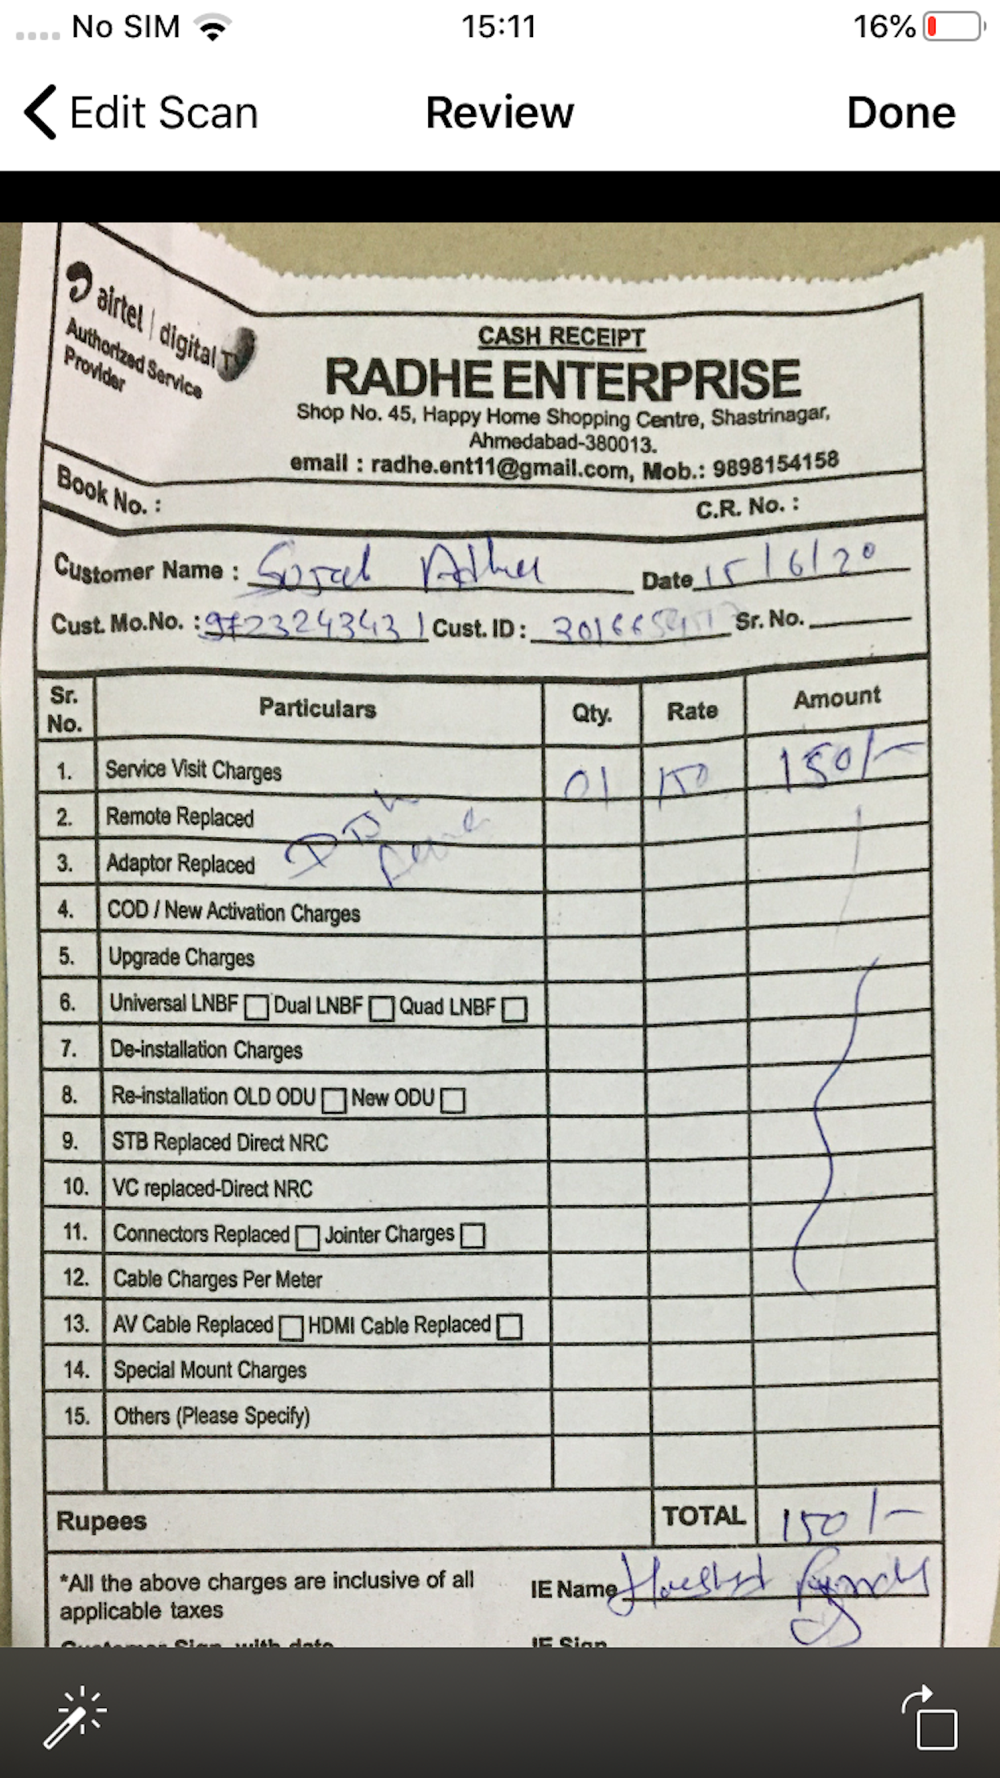 No SIM 15:11 16%
Edit Scan Review Done
airtel | digital TV
Authorized Service
Provider
CASH RECEIPT
RADHE ENTERPRISE
Shop No. 45, Happy Home Shopping Centre, Shastrinagar,
Ahmedabad-380013.
email : radhe.ent11@gmail.com, Mob.: 9898154158
Book No. : C.R. No. :
Customer Name : Date 15/6/20
Cust. Mo.No. : 9723243431 Cust. ID : Sr. No.
Sr. No. Particulars Qty. Rate Amount
1. Service Visit Charges 01 150 150/-
2. Remote Replaced
3. Adaptor Replaced
4. COD / New Activation Charges
5. Upgrade Charges
6. Universal LNBF Dual LNBF Quad LNBF
7. De-installation Charges
8. Re-installation OLD ODU New ODU
9. STB Replaced Direct NRC
10. VC replaced-Direct NRC
11. Connectors Replaced Jointer Charges
12. Cable Charges Per Meter
13. AV Cable Replaced HDMI Cable Replaced
14. Special Mount Charges
15. Others (Please Specify)
Rupees TOTAL 150/-
*All the above charges are inclusive of all
applicable taxes
IE Name
Customer Sign. with date IE Sign